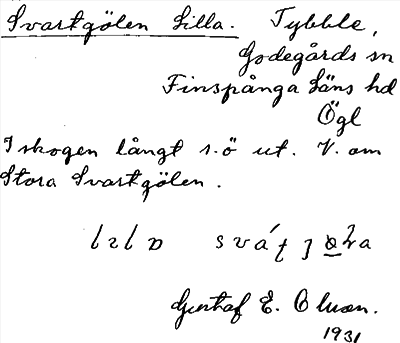 Svartgölen Lilla. Tybble,
Godegårds sn
Finspånga Läns hd
Ögl
I skogen långt s.ö ut. V. om
Stora Svartgölen.
Gustaf E. Olson.
1931